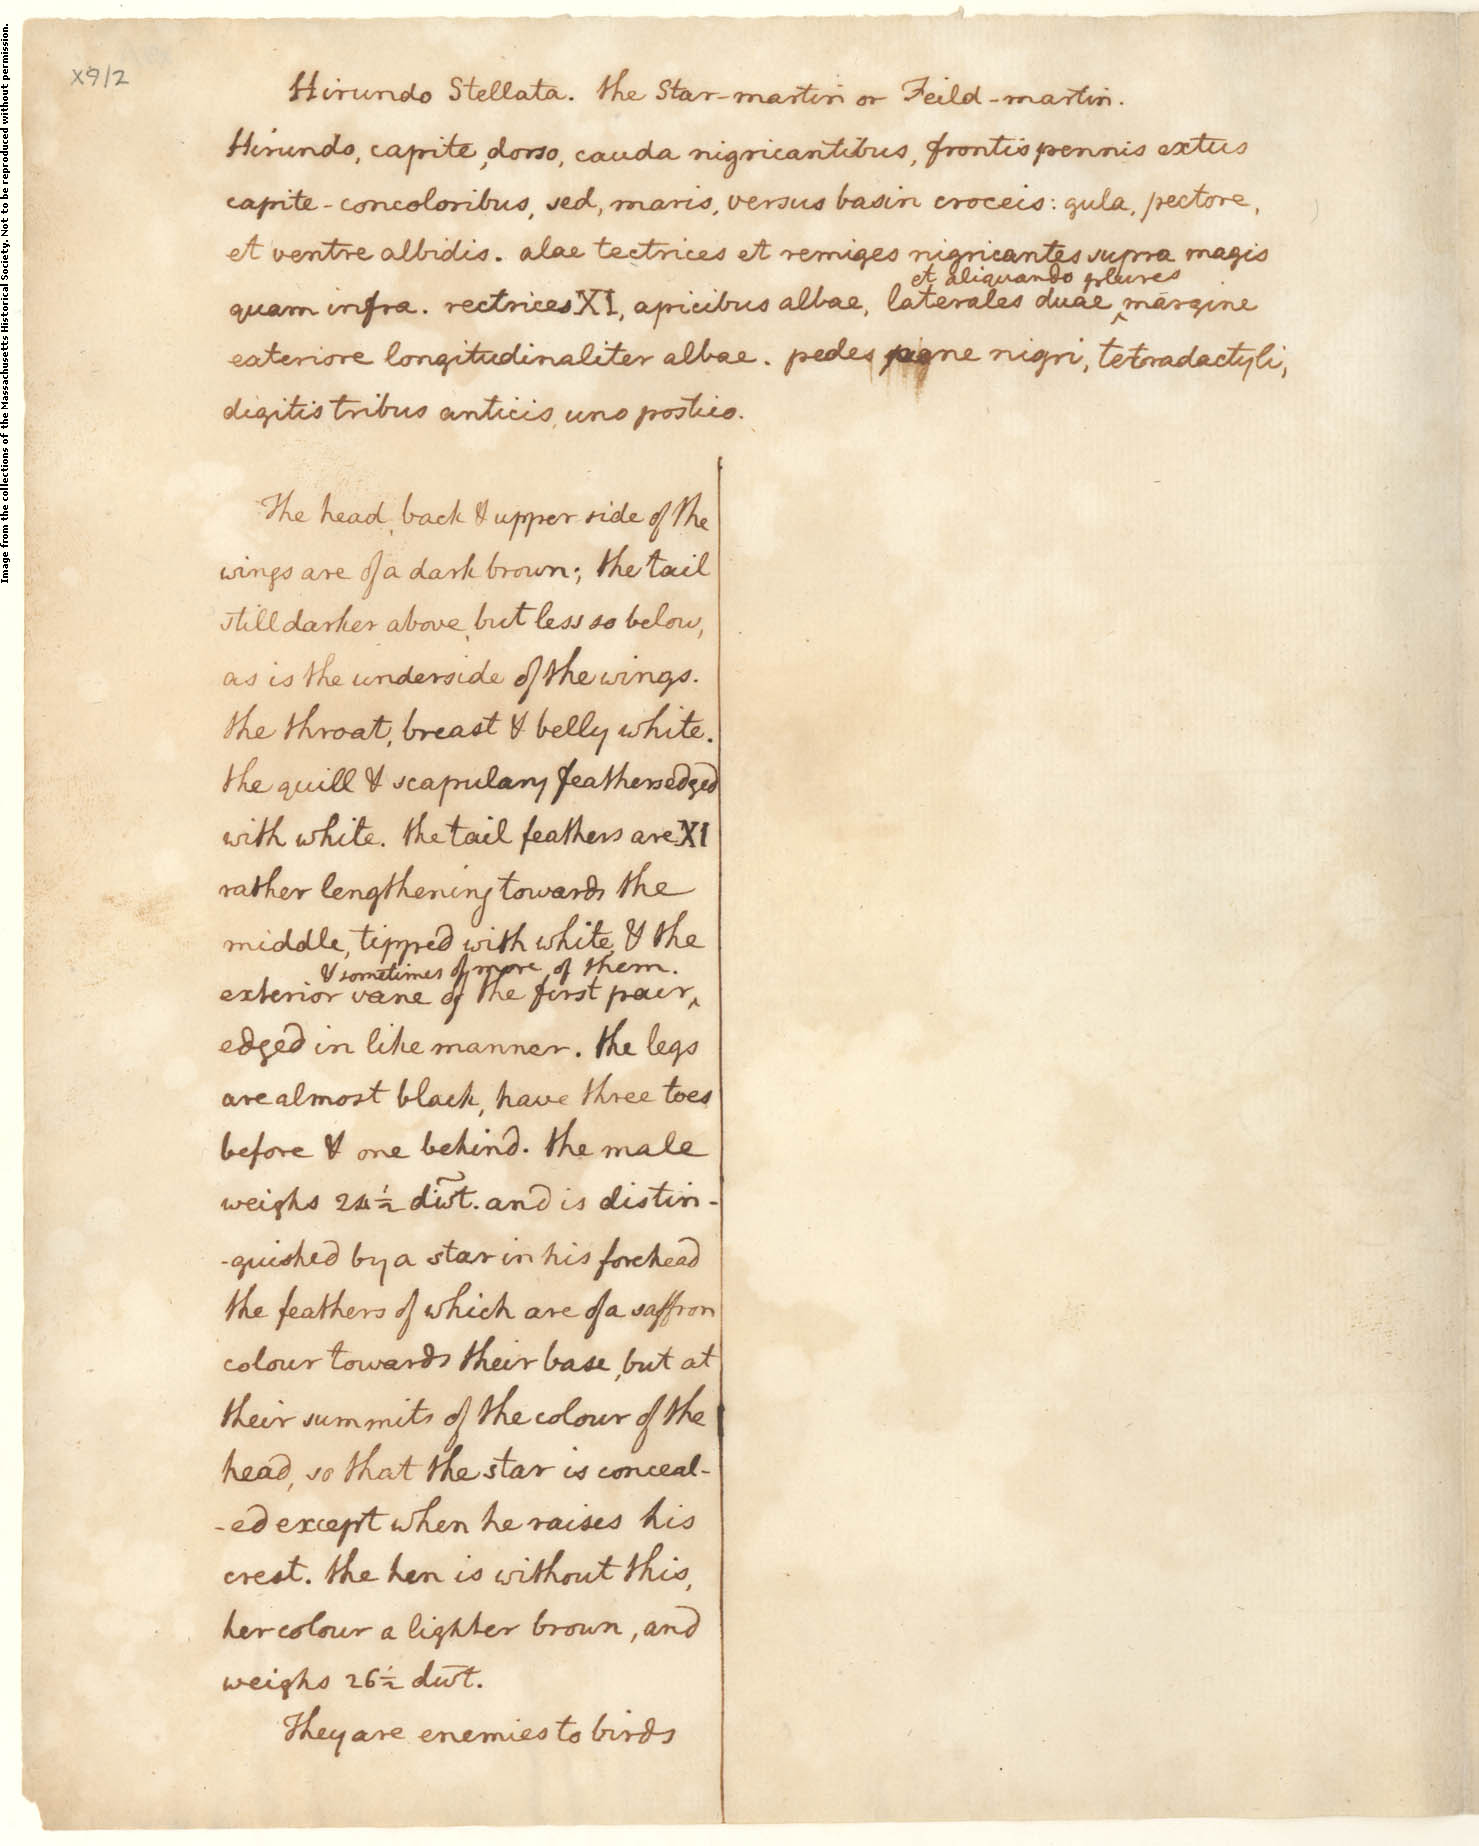 Image from the collections of the Massachusetts Historical Society. Not to be reproduced without permission.
X912
Hirundo Stellata. the Star-martin or Feild-martin.
Hirundo, capite, dorso, cauda nigricantibus, frontis pennis extus
capite-concoloribus, sed, maris, versus basin croceis: gula, pectore,
et ventre albidis. alae tectrices et remiges nigricantes supra magis
et aliquando plures
quam infra. rectrices XI, apicibus albae, laterales duae ^ margine
exteriore longitudinaliter albae. pedes pene nigri, tetradactyli,
digitis tribus anticis, uno postico.
The head, back & upper side of the
wings are of a dark brown; the tail
still darker above, but less so below,
as is the underside of the wings.
the throat, breast & belly white.
the quill & scapulary feathers edged
with white. the tail feathers are XI
rather lengthening towards the
middle, tipped with white, & the
& sometimes of more of them.
exterior vane of the first pair ^
edged in like manner. the legs
are almost black, have three toes
before & one behind. the male
weighs 24½ dwt. and is distin-
-guished by a star in his forehead
the feathers of which are of a saffron
colour towards their base, but at
their summits of the colour of the
head, so that the star is conceal-
-ed except when he raises his
crest. the hen is without this,
her colour a lighter brown, and
weighs 26½ dwt.
They are enemies to birds